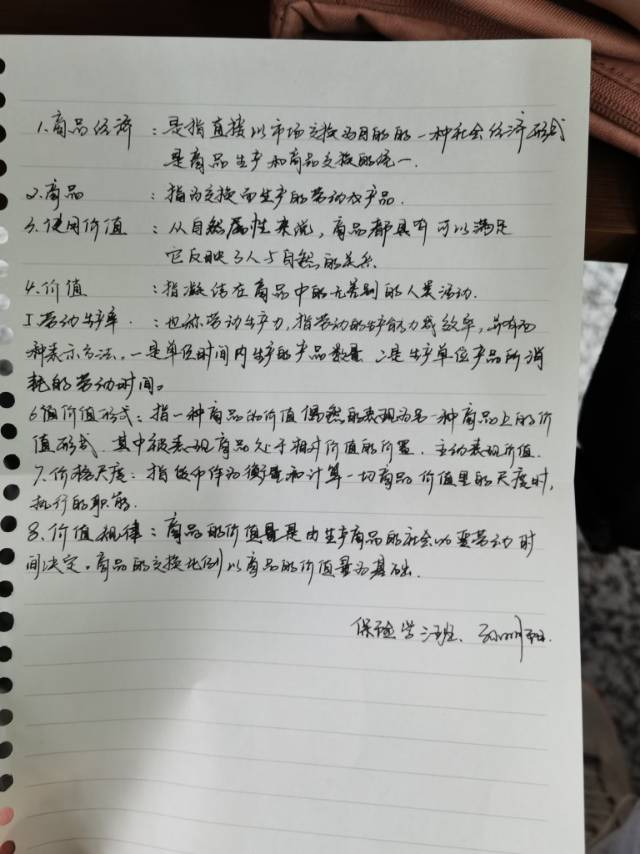 1.商品经济：是指直接以市场交换为目的的一种社会经济形式
是商品生产和商品交换的统一.
2.商品：指为交换而生产的劳动产品.
3.使用价值：从自然属性来说，商品都具有可以满足
它反映了人与自然的关系.
4.价值：指凝结在商品中的无差别的人类活动.
5劳动生产率.：也称劳动生产力，指劳动的生产能力或效率，
种表示方法，一是单位时间内生产的产品数量 二是生产单位产品所消
耗的劳动时间。
6 价值形式：指一种商品的价值偶然的表现为另一种商品上的价
值形式.其中被表现商品处于相对价值的位置.主动表现价值.
7.价格尺度：指货币作为衡量和计算一切商品价值量的尺度时，
执行的职能.
8.价值规律：商品的价值量是由生产商品的社会必要劳动时
间决定。商品的交换比例以商品的价值量为基础.
保险学 班、